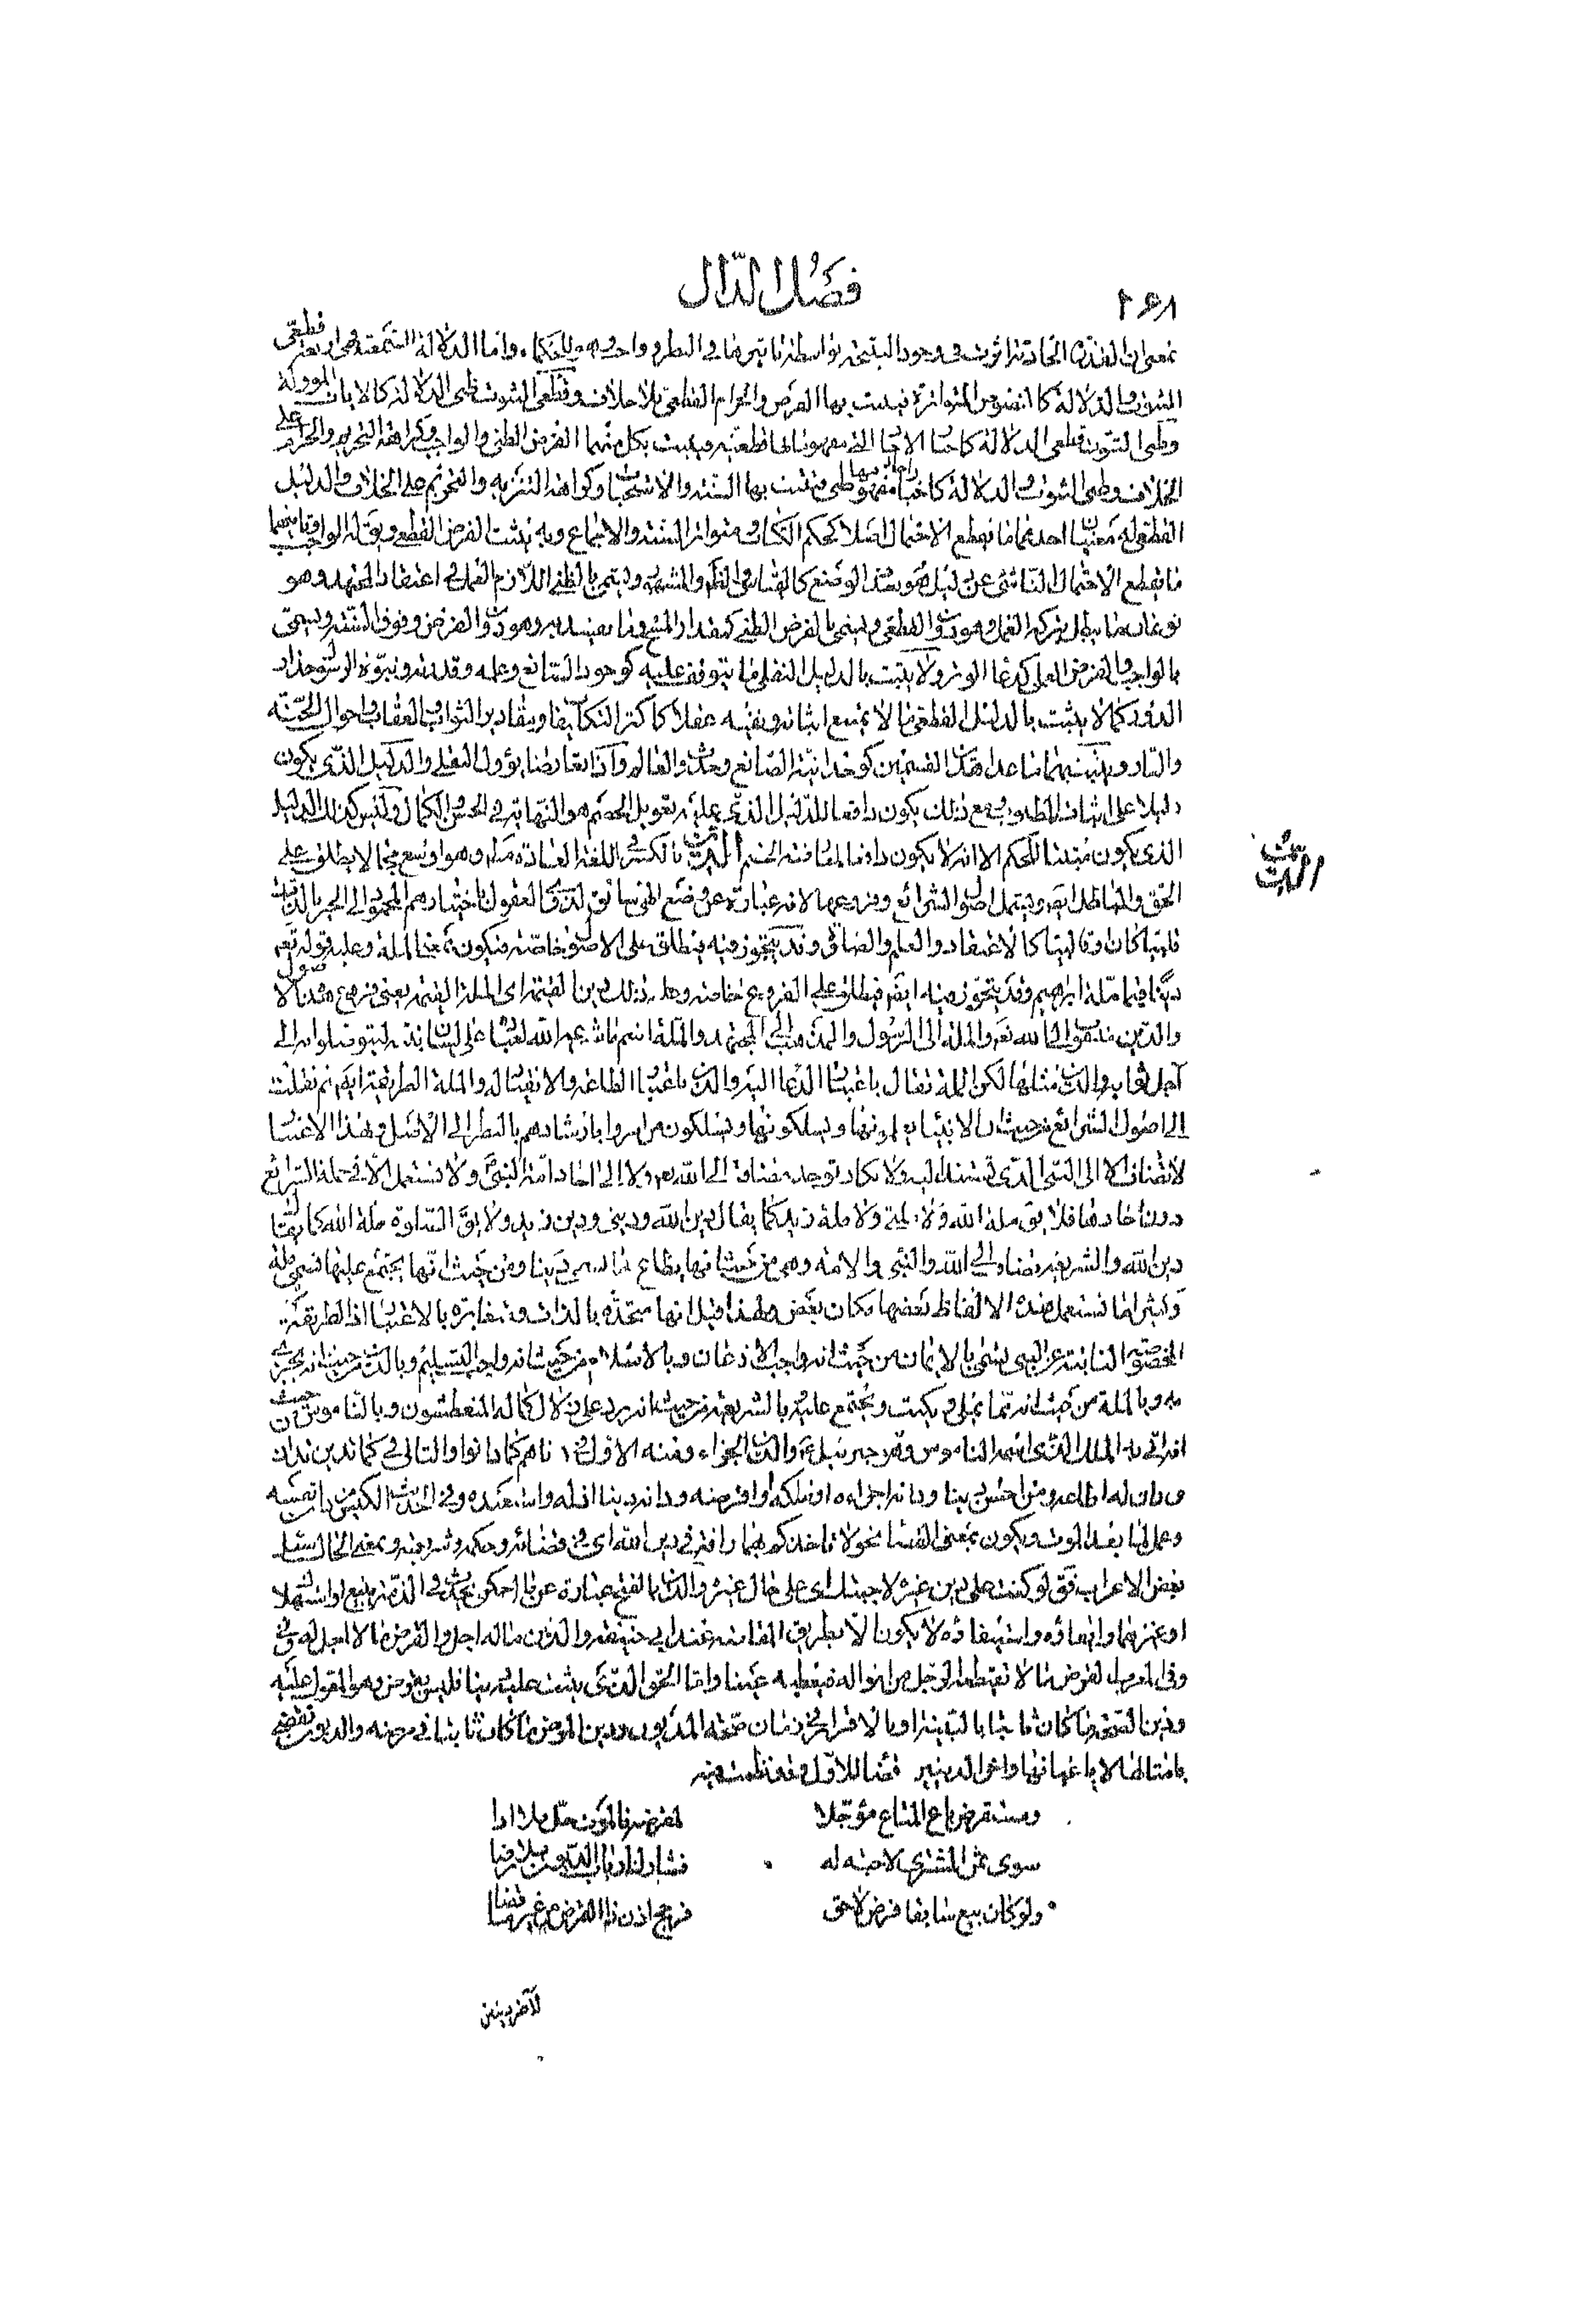 ٢٦٨
فصل الدال
بمعنى ان القدرة الحادثة اثرت في وجود النتيجة بواسطة تاثيرها في النظر واجب وهو للحكماء واما الدلالة السمعية فهي اربعة قطعي
الثبوت والدلالة كالنصوص المتواترة فيثبت بها الفرض والحرام القطعي بلا خلاف وقطعي الثبوت ظني الدلالة كالايات المؤولة
وظني الثبوت قطعي الدلالة كاخبار الاحاد التي مفهومها قطعية فيثبت بكل منهما الفرض الظني والواجب وكراهة التحريم والحرام على
الخلاف وظني الثبوت والدلالة كاخبار احاد مفهومها ظني فيثبت بها السنة والاستحباب وكراهة التنزيه والتحريم على الخلاف والدليل
القطعي له معنيان احدهما ما يقطع الاحتمال اصلا كحكم الكتاب ومتواتر السنة والاجماع وبه يثبت الفرض القطعي ويقال له الواجب وثانيهما
ما يقطع الاحتمال الناشئ عن دليل
نوعان ما يبطل بتركه العمل وهو دون القطعي ويسمى بالفرض الظني كمقدار المسح وما وهو دون الفرض وفوق السنة ويسمى
بالواجب والفرض العملي كدعاء الوتر ولا يثبت بالدليل النقلي ما يتوقف عليه كوجود الصانع وعلمه وقدرته ونبوة الرسول حذار
الدور كما لا يثبت بالدليل القطعي ما لا يمتنع اثباته ونفيه عقلا كاكثر التكاليف ومقادير الثواب والعقاب واحوال الجنة
والنار ويثبت بهما ما عدا هذين القسمين كوحدانية الصانع وحدوث العالم واذا تعارضا يؤول النقلي والدليل الذي يكون
دليلا على اثبات المطلوب ومع ذلك يكون دافعا للدليل الذي عليه تعويل الخصم هو النهاية في الحسن والكمال وليس كذلك الدليل
الذي يكون مثبتا للحكم الا انه لا يكون دافعا لمعارضة الخصم الدين بالكسر في اللغة العادة مطلقا وهو اوسع مجالا يطلق على
الحق والباطل ايضا ويشمل اصول الشرائع وفروعها لانه عبارة عن وضع الهي سائق لذوي العقول باختيارهم المحمود الى الخير بالذات
قلبيا كان او قالبيا كالاعتقاد والعلم والصلوة وقد يتجوز فيه فيطلق على الاصول خاصة فيكون بمعنى الملة وعليه قوله تعالى
دينا قيما ملة ابراهيم وقد يتجوز فيه ايضا فيطلق على الفروع خاصة وعليه ذلك دين القيمة اي الملة القيمة يعني فروع هذه الاصول
والدين منسوب الى الله تعالى والملة الى الرسول والمذهب الى المجتهد والملة اسم ما شرعه الله لعباده على لسان نبيه ليتوصلوا به الى
آجل ثوابه والدين مثلها لكن الملة تقال باعتبار الدعاء اليه والدين باعتبار الطاعة والانقياد له والملة الطريقة ايضا ثم نقلت
الى اصول الشرائع من حيث ان الانبياء يعلمونها ويسلكونها ويسلكون من امروا بارشادهم بالنظر الى الاصل وبهذا الاعتبار
لا تضاف الا الى النبي الذي تستند اليه ولا تكاد توجد مضافة الى الله تعالى ولا الى احاد امة النبي ولا تستعمل الا في جملة الشرائع
دون احادها فلا يقال ملة الله ولا ملتي ولا ملة زيد كما يقال دين الله وديني ودين زيد ولا يقال الصلوة ملة الله كما يقال
دين الله والشريعة تضاف الى الله والنبي والامة وهي من حيث انها يطاع بها تسمى دينا ومن حيث انها يجتمع عليها تسمى ملة
وكثيرا ما تستعمل هذه الالفاظ بعضها مكان بعض ولهذا قيل انها متحدة بالذات ومتغايرة بالاعتبار اذ الطريقة
المخصوصة الثابتة عن النبي يسمى بالايمان من حيث انه واجب الاذعان وبالاسلام من حيث انه واجب التسليم وبالدين من حيث انه يجزى
به وبالملة من حيث انه مما يملى ويكتب ويجتمع عليه بالشريعة من حيث انه يرد على زلال كماله المتعطشون وبالناموس من حيث
انه اتى به الملك الذي اسمه الناموس وهو جبرئيل والدين الجزاء ومنه الاول في دناهم كما دانوا والثاني في كما تدين تدان
ودان له اطاعه ومن احسن دينا ودانه اجزاه او ملكه او اقرضه ودانه دينا اذله واستعبده وفي الحديث الكيس من دان نفسه
وعمل لما بعد الموت ويكون بمعنى القضاء نحو لا تاخذكم بهما رافة في دين الله اي في قضائه وحكمه وشريعته وبمعنى الحال سئل
بعض الاعراب فقال لو كنت على دين غيره لاجبتك اي على حال غيره والدين بالفتح عبارة عن مال حكمي يحدث في الذمة ببيع او استهلاك
او غيرهما وايفاؤه واستيفاؤه لا يكون الا بطريق المقاصة عند ابي حنيفة والدين ما له اجل والقرض ما لا اجل له وفي
القرض ما لا يقطعه الرجل من امواله فيعطيه عينا واما الحق الذي يثبت عليه دينا فليس بقرض وهو المعول عليه
ودين الصحة ما كان ثابتا بالبينة او بالاقرار في زمان صحة المديون ودين المرض ما كان ثابتا في مرضه والديون تقضى
بامثالها لا باعيانها واخر الدينين قضاء للاول وقد نظمت فيه
ومستقرض باع المتاع مؤجلا لمقرضه فالموت حل بلا ادا
سوى ثمن المشترى لا جنبه له فشارك لارباب الديون بلا رضا
ولو كان بيع سابقا قرض لاحق فرجح اذن ذا القرض من غير
لآخر دينين
الدين